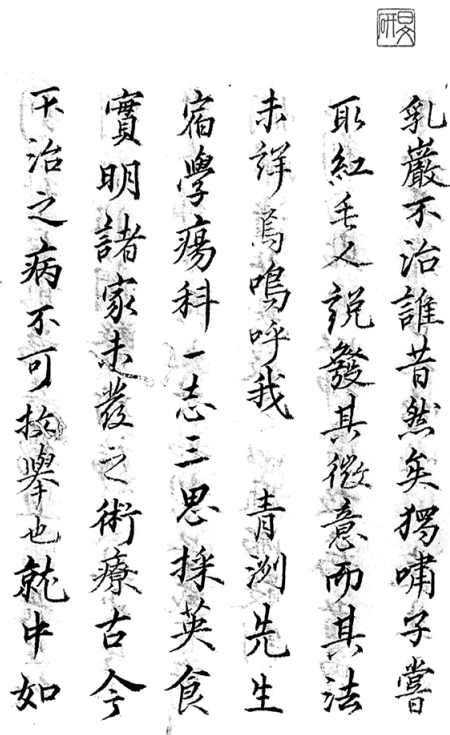 乳巖不治誰昔然矣獨嘯子嘗
取紅毛人説發其微意而其法
未詳焉嗚呼我　青洲先生
宿學瘍科一志三思採英食
實明諸家未發之術療古今
不治之病不可枚擧也就中如